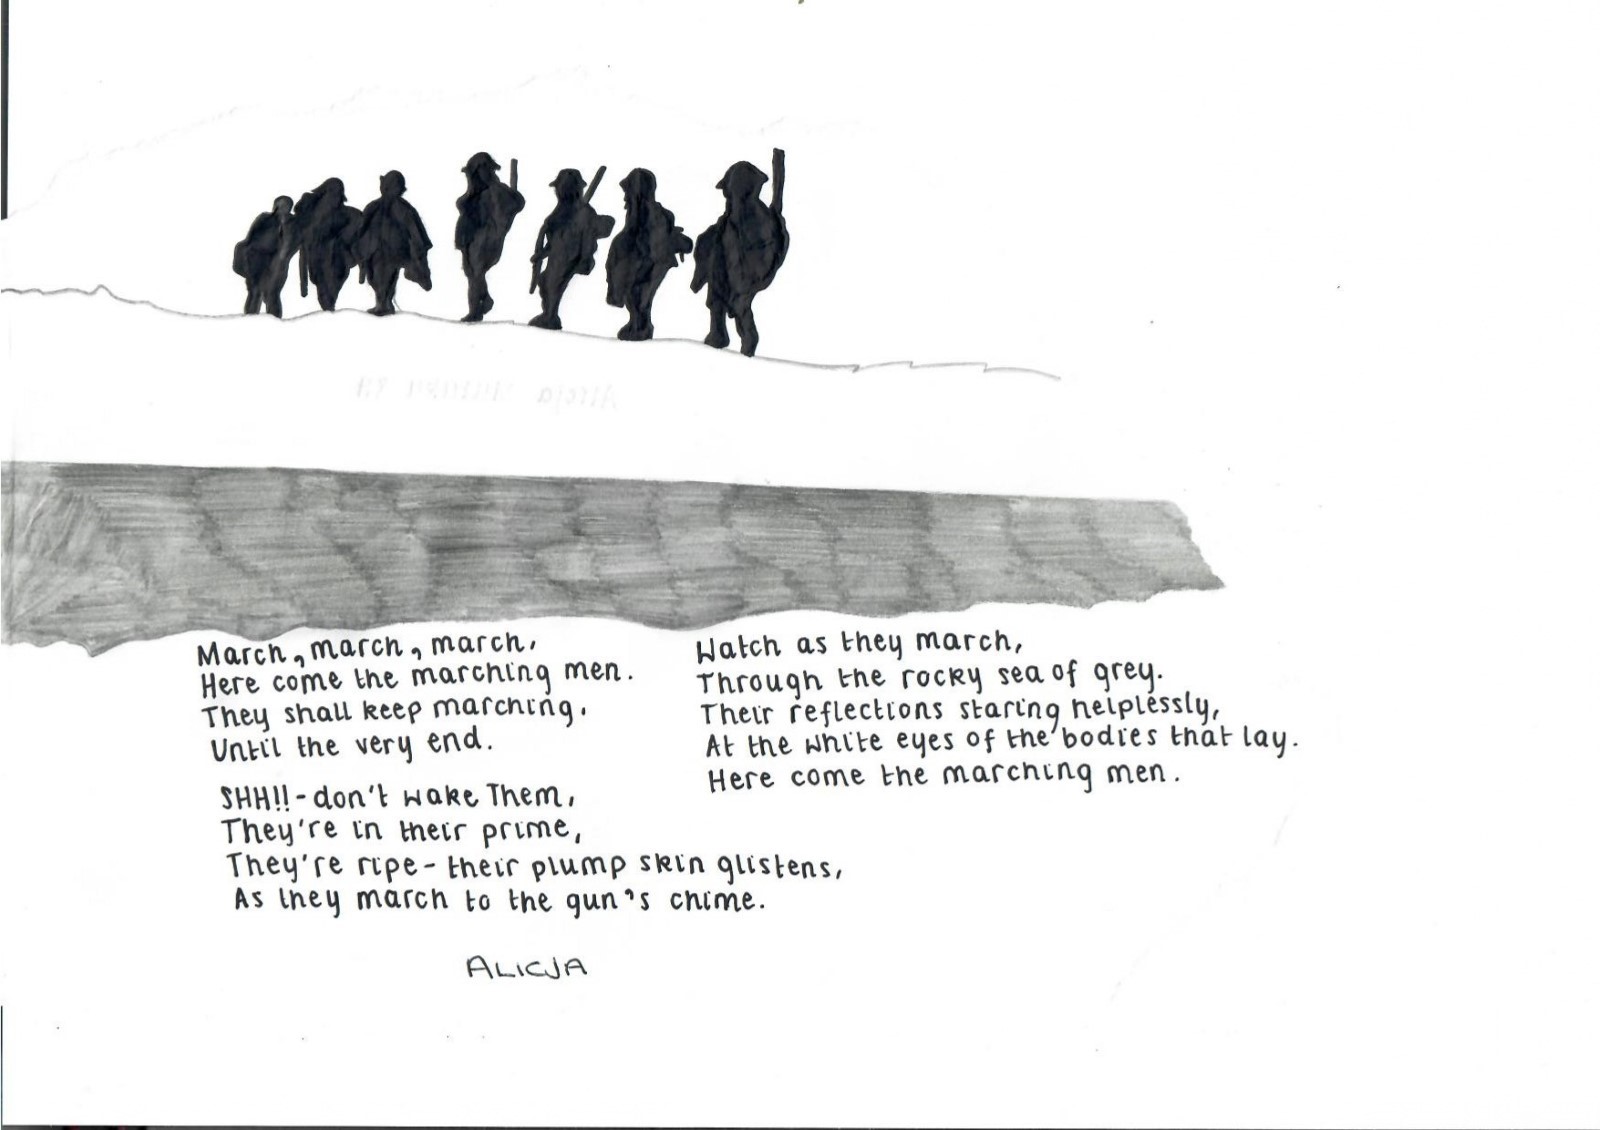 March, march, march,
Here come the marching men.
They shall keep marching,
Until the very end.
SHH!! - don't wake Them,
They're in their prime,
They're ripe - their plump skin glistens,
As they march to the gun's chime.
Watch as they march,
Through the rocky sea of grey.
Their reflections staring helplessly,
At the white eyes of the bodies that lay.
Here come the marching men.
ALICJA